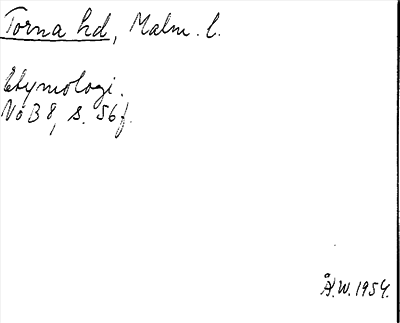 Torna hd, Malm. l.
Etymologi.
NoB 8, s. 56 f.
Å.W. 1954.